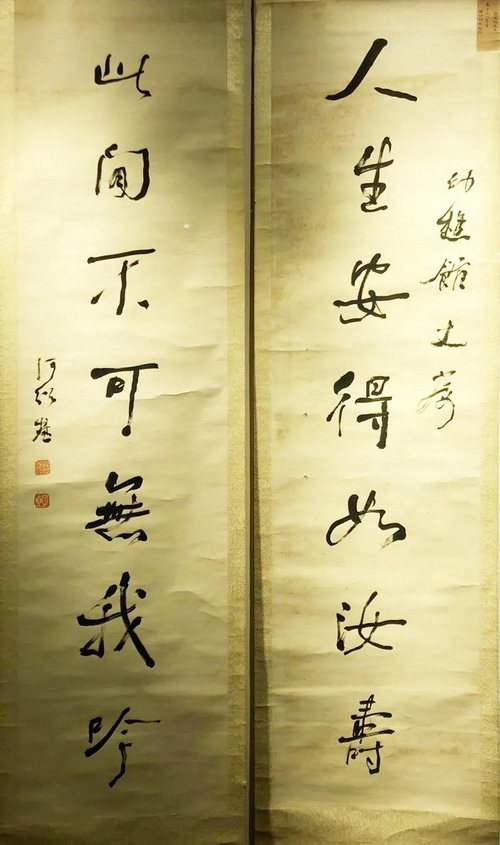 幼樵館丈屬
人生安得如汝壽
此間不可無我吟
何紹基